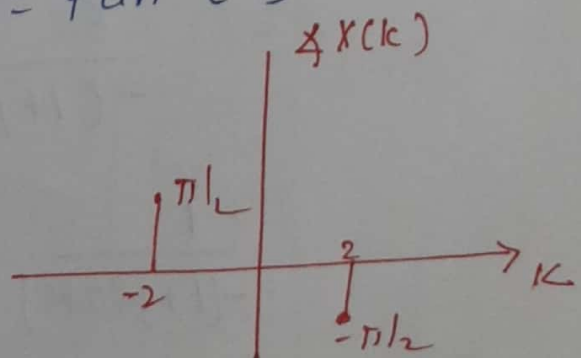 ∡ X(k)
π/2
2
-2
K
-π/2